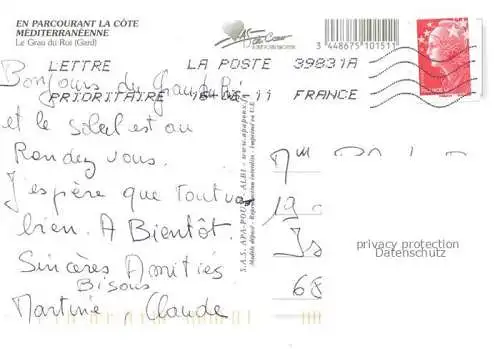 EN PARCOURANT LA CÔTE
MÉDITERRANÉENNE
Le Grau du Roi (Gard)
As de Cœur
3 448675 101511
LETTRE LA POSTE 39831A
PRIORITAIRE FRANCE
Bonjours du Grau du Roi
et le soleil est au
Rendez vous.
J'espère que tout va
bien. A Bientôt.
Sincères Amitiés
Bisous
Martine, Claude
S.A.S. APA-POUX - ALBI - www.apapoux.fr
Modèle déposé - Reproduction interdite - Imprimé en U.E.
FRANCE
Mme
19
68
privacy protection
Datenschutz